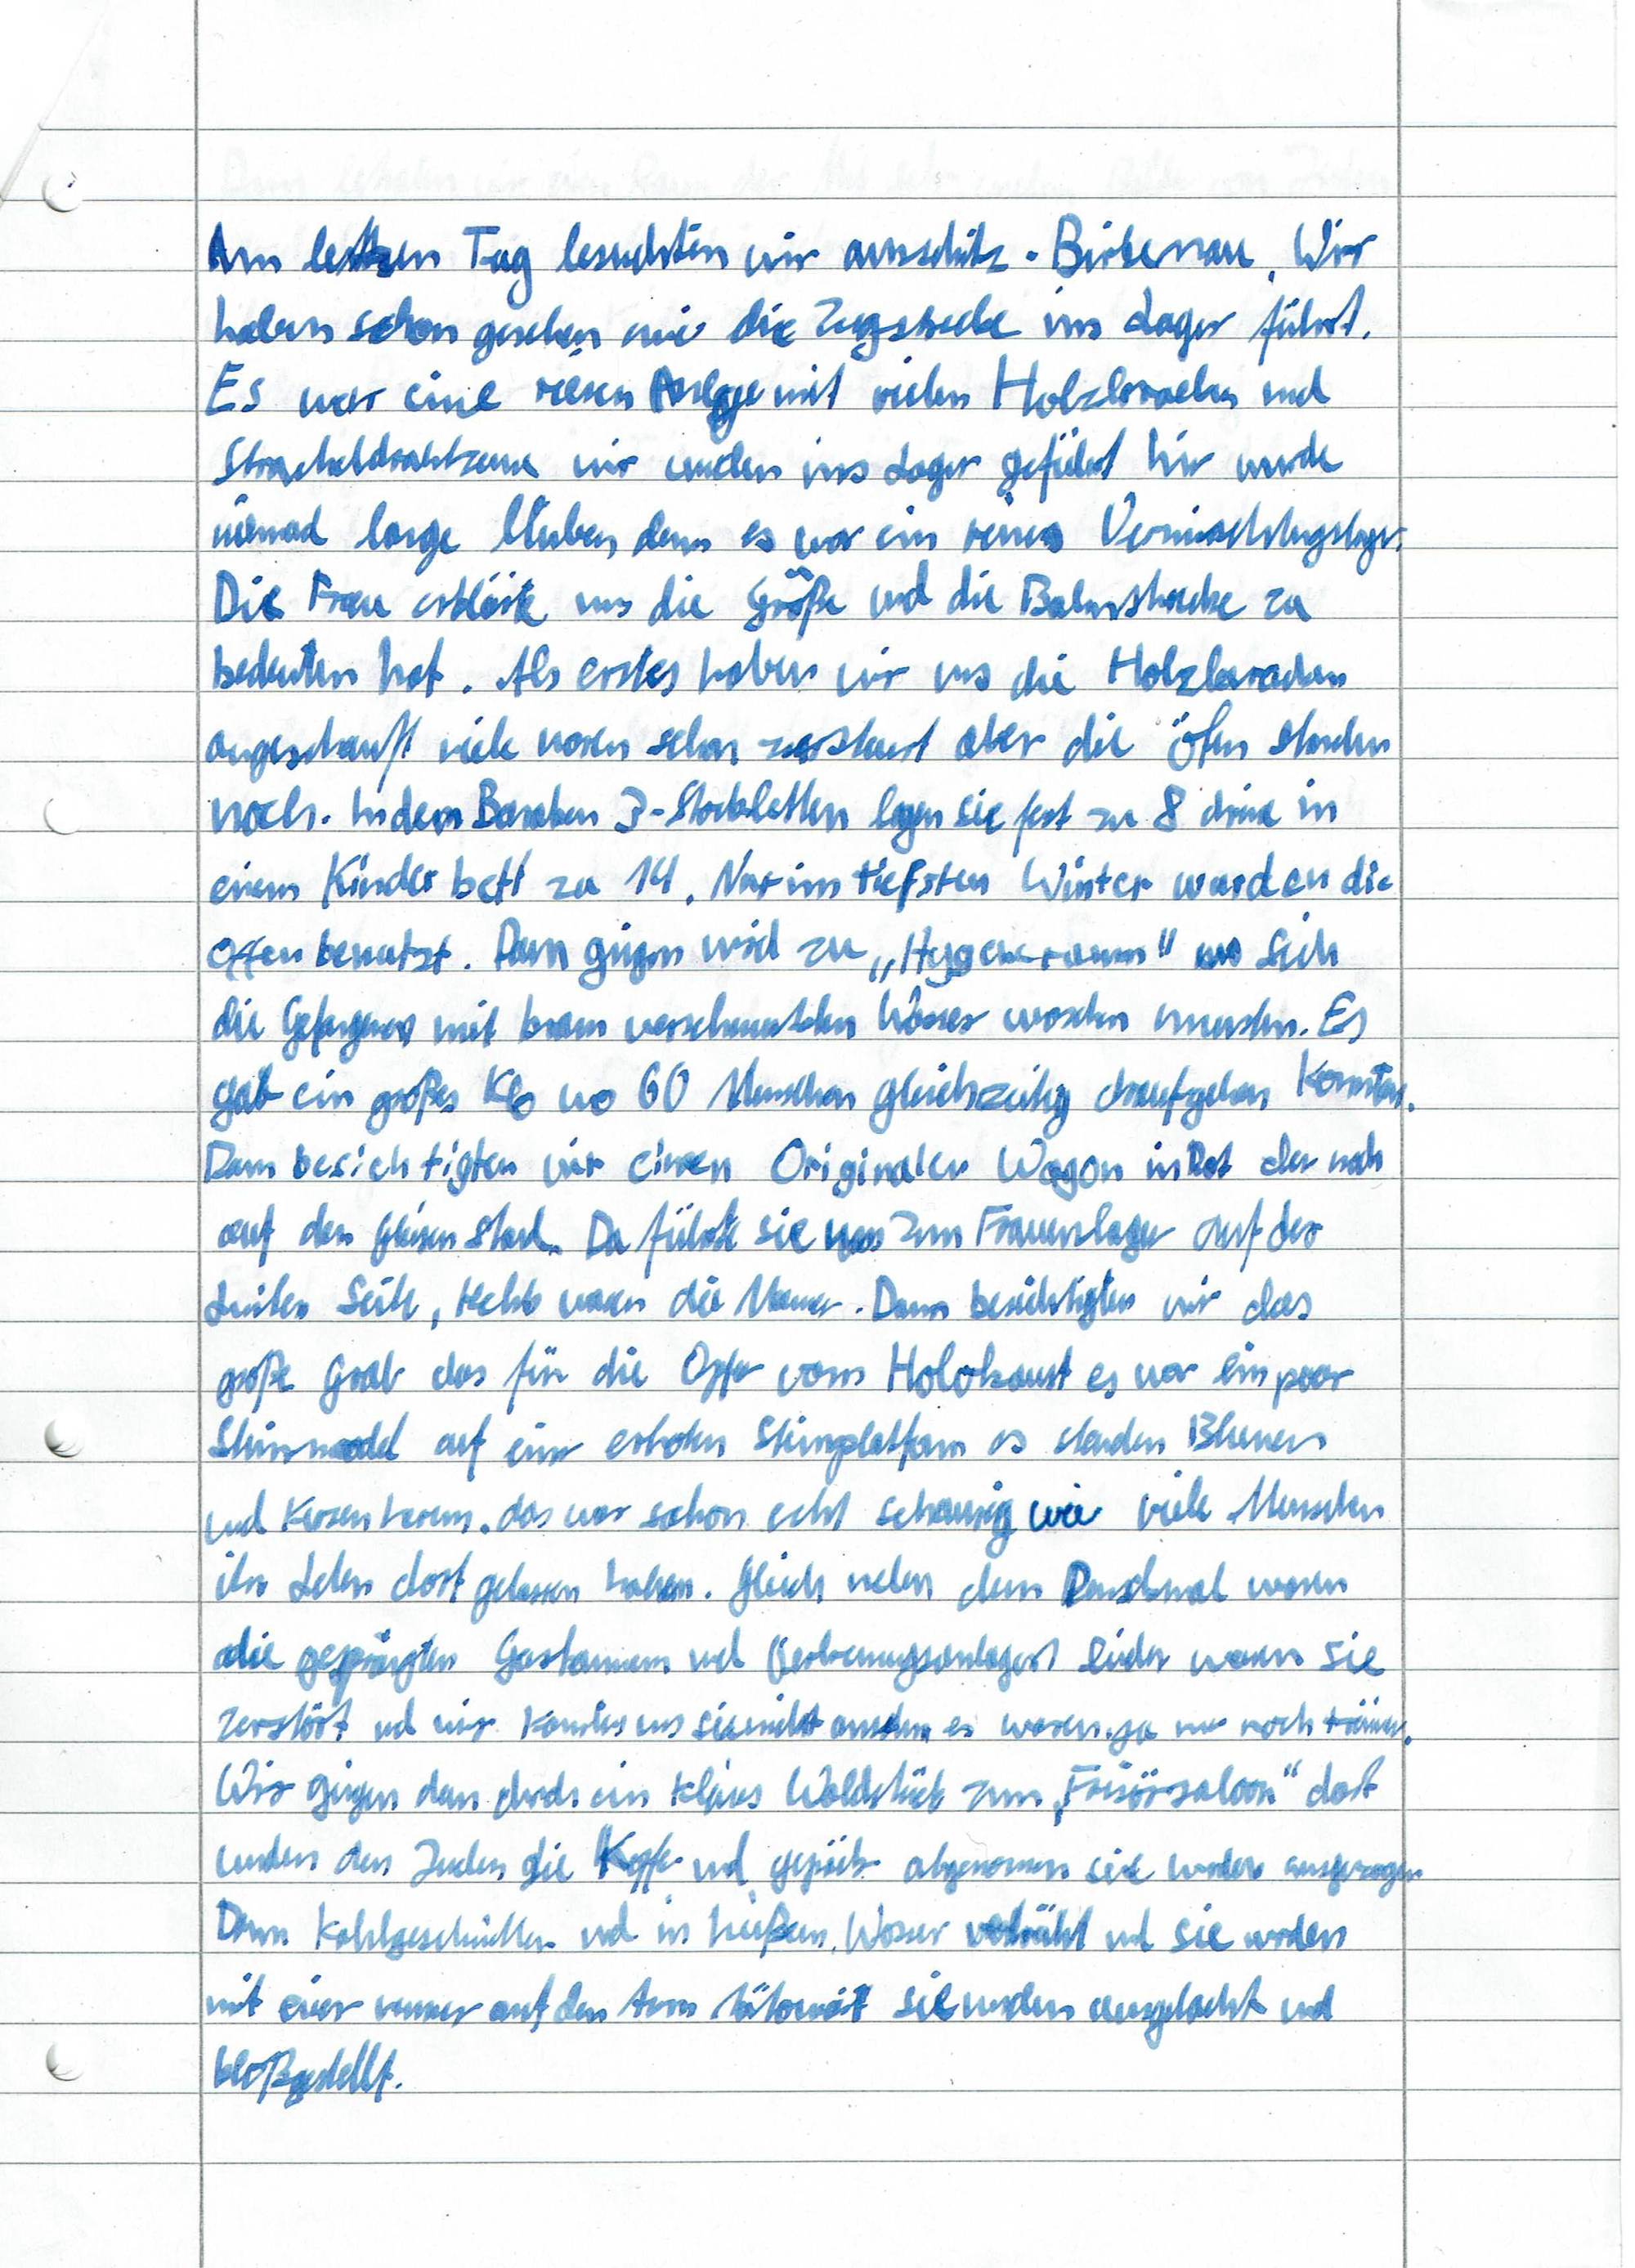 Am letzten Tag besuchten wir ausschitz - Birkenau. Wir
haben schon gesehen wie die Zugstrecke ins Lager führt.
Es war eine riesen Anlage mit vielen Holzbaracken und
Stracheldrahtzaun wir wurden ins Lager geführt hir wurde
niemad lange bleiben denn es war ein reines Vernischtugslager.
Die Frau erklärte uns die Größe und die Bahnstrecke zu
bedeuten hat. Als erstes haben wir uns die Holzbaracken
angeschauft viele waren schon zerstert aber die öfen standen
noch. In dem Baraken 3-Stockbetten lagen sie fest zu 8 drine in
einem Kinderbett zu 14. Nur im tiefsten Winter wurden die
Offen benutzt. Dann gingen wird zu „Hygeneraum" wo sich
die Gefangenen mit braun verschmutzten Wasser waschen mussten. Es
gab ein großes Klo wo 60 Menschen gleichzeitig draufgehen Konnten.
Dann besichtigten wir einen Originalen Wagon in Rot der noch
auf den Gleisen stand. Da führte sie uns zum Frauenlager auf der
Linken Seite, Rechts waren die Männer. Dann besichtigten wir das
große Grab das für die Opfer vom Holokaust es war ein paar
auf einer erhöten Steinplatform es standen Blumen
und Kerzen herum. das war schon echt schaurig wie viele Menschen
ihr Leben dort gelassen haben. Gleich neben dem Denckmal waren
die gesprengten Gaskammern und Verbrenungsanlagen leider waren sie
zerstört und wir konnten uns sie nicht ansehen es waren ja nur noch
Wir gingen dan durch ein kleines Waldstück zum „Frisörsaloon" dort
wurden den Juden die und gepäck abgenomen sie wurden ausgezogen
Dann Kahlgeschnitten und in heißem Wasser und sie wurden
mit einer numer auf den Arm tätowiert sie wurden ausgelacht und
bloßgestellt.